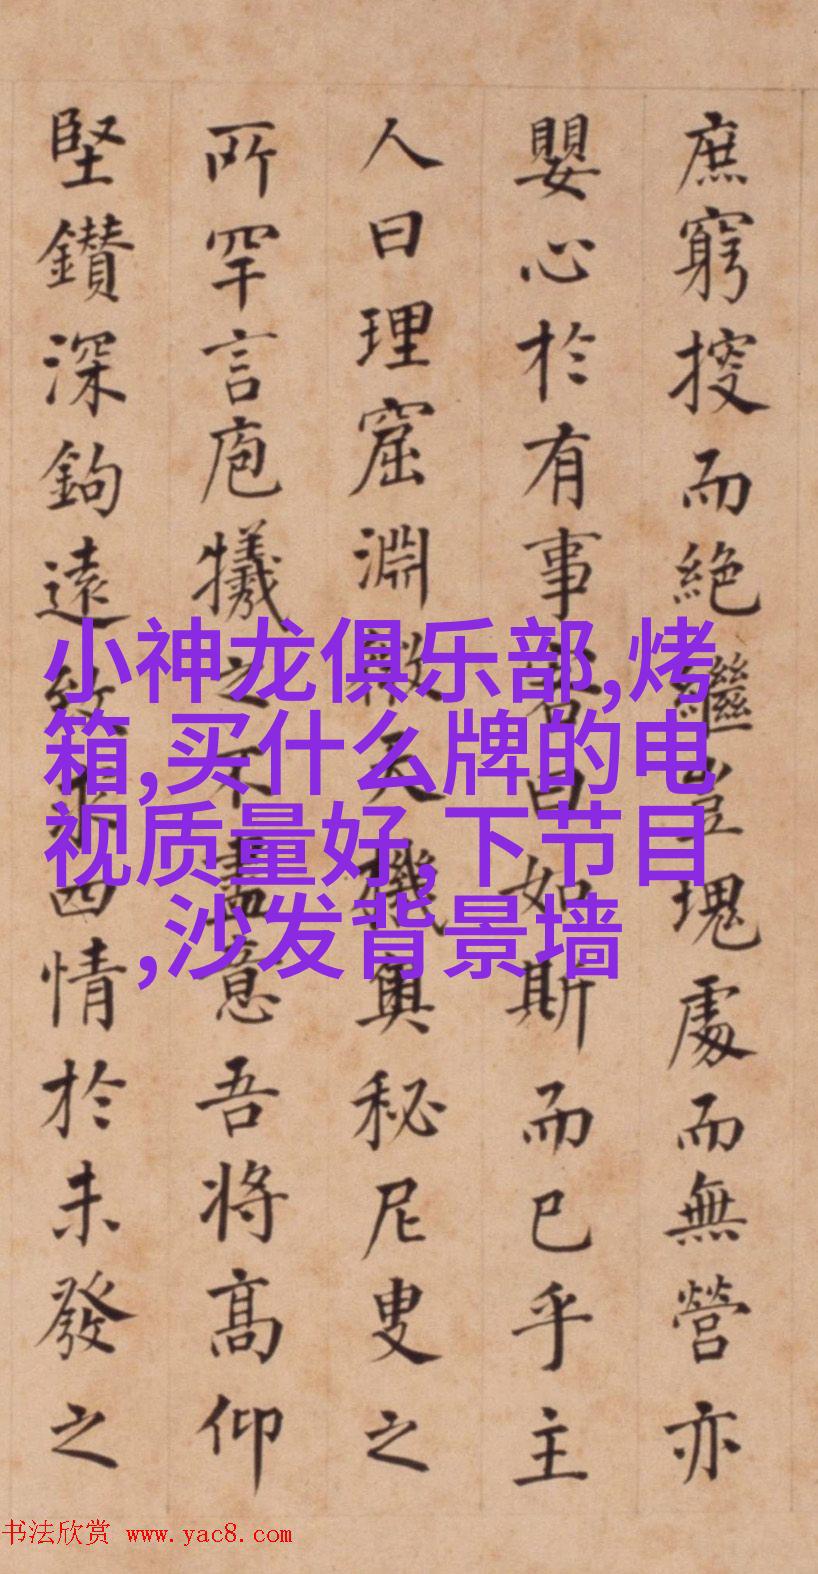 庶窮搜而絶繼豈塊處而無營亦
嬰心於有事客曰如斯而已乎主
人曰理窟淵微天機奧秘尼叟之
所罕言庖犧之不盡意吾将髙仰
堅鑽深鉤遠致求四情於未發之
小神龙俱乐部,烤
箱,买什么牌的电
视质量好,下节目
,沙发背景墙
书法欣赏 www.yac8.com